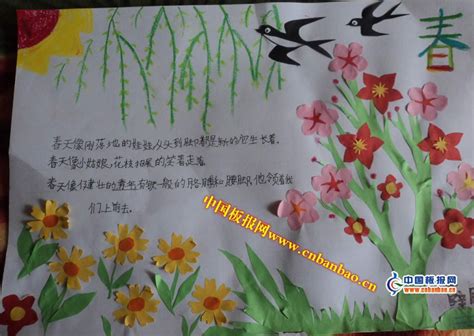 春
春天像刚落地的娃娃从头到脚都是新的它生长着。
春天像小姑娘,花枝招展的笑着走着
春天像健壮的青年有铁一般的胳膊和腰脚他领着我
们上前去。
中国板报网www.cnbanbao.cn
中国板报网
www.cnbanbao.cn